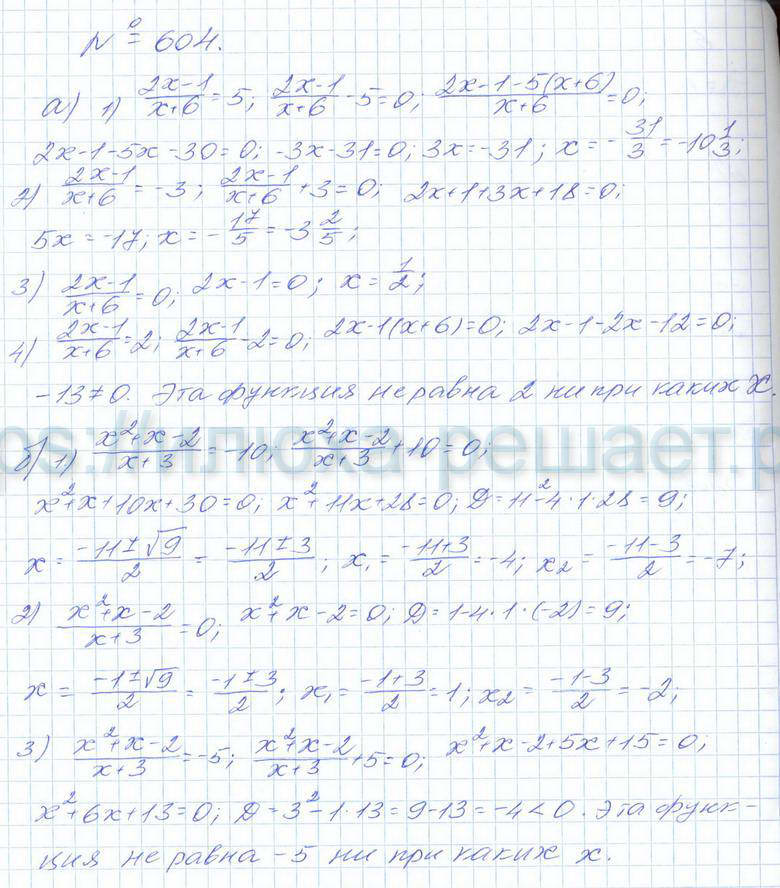 № 604.
а) 1) (2x-1)/(x+6) = 5; (2x-1)/(x+6) - 5 = 0; (2x-1-5(x+6))/(x+6) = 0;
2x-1-5x-30=0; -3x-31=0; 3x=-31; x = -31/3 = -10 1/3;
2) (2x-1)/(x+6) = -3; (2x-1)/(x+6) + 3 = 0; 2x+1+3x+18=0;
5x=-17; x = -17/5 = -3 2/5;
3) (2x-1)/(x+6) = 0; 2x-1=0; x = 1/2;
4) (2x-1)/(x+6) = 2; (2x-1)/(x+6) - 2 = 0; 2x-1(x+6)=0; 2x-1-2x-12=0;
-13≠0. Эта функция не равна 2 ни при каких x.
б) 1) (x²+x-2)/(x+3) = -10; (x²+x-2)/(x+3) + 10 = 0;
x²+x+10x+30=0; x²+11x+28=0; D=11²-4·1·28=9;
x = (-11±√9)/2 = (-11±3)/2; x₁ = (-11+3)/2 = -4; x₂ = (-11-3)/2 = -7;
2) (x²+x-2)/(x+3) = 0; x²+x-2=0; D=1-4·1·(-2)=9;
x = (-1±√9)/2 = (-1±3)/2; x₁ = (-1+3)/2 = 1; x₂ = (-1-3)/2 = -2;
3) (x²+x-2)/(x+3) = -5; (x²+x-2)/(x+3) + 5 = 0; x²+x-2+5x+15=0;
x²+6x+13=0; D=3²-1·13=9-13=-4<0. Эта функ-
ция не равна -5 ни при каких x.